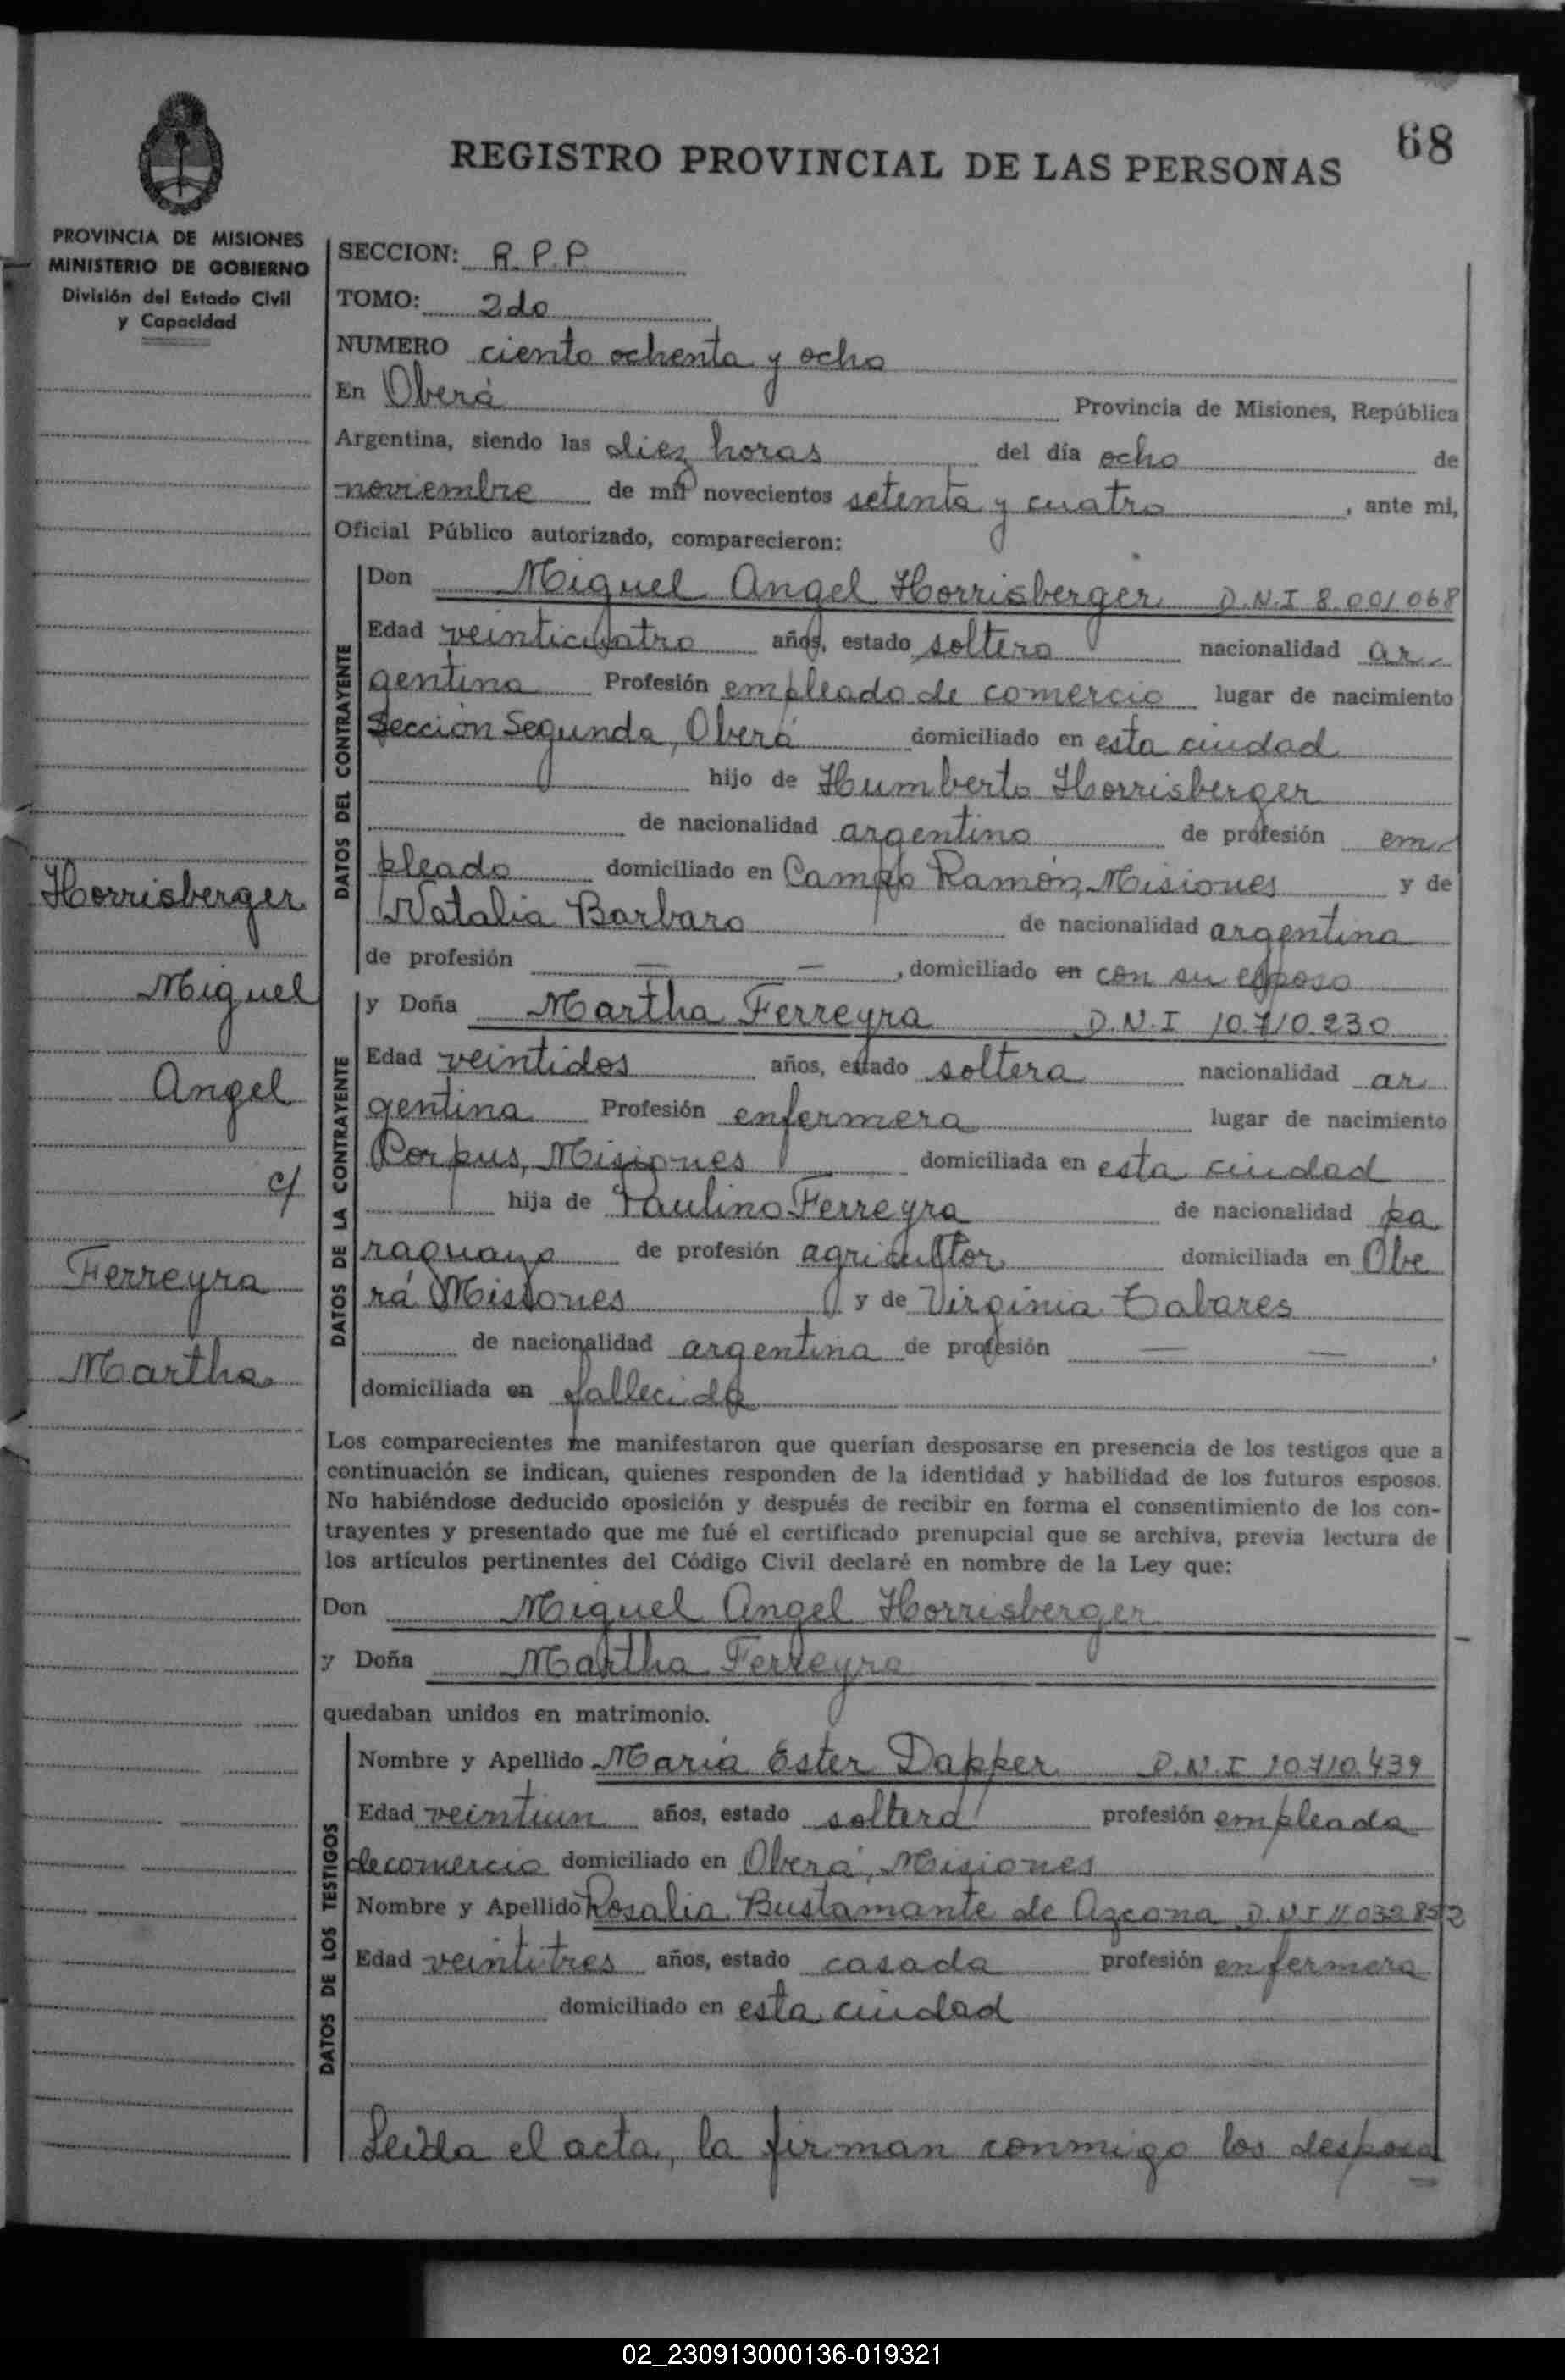 68
REGISTRO PROVINCIAL DE LAS PERSONAS
PROVINCIA DE MISIONES
MINISTERIO DE GOBIERNO
División del Estado Civil
y Capacidad
SECCION: R.P.P
TOMO: 2do
NUMERO ciento ochenta y ocho
En Oberá Provincia de Misiones, República
Argentina, siendo las diez horas del día ocho de
noviembre de mil novecientos setenta y cuatro, ante mi,
Oficial Público autorizado, comparecieron:
DATOS DEL CONTRAYENTE
Don Miguel Angel Horrisberger D.N.I 8.001.068
Edad veinticuatro años, estado soltero nacionalidad ar-
gentina Profesión empleado de comercio lugar de nacimiento
Sección Segunda, Oberá domiciliado en esta ciudad
hijo de Humberto Horrisberger
de nacionalidad argentino de profesión em-
pleado domiciliado en Campo Ramón, Misiones y de
Natalia Barbaro de nacionalidad argentina
de profesión — —, domiciliado en con su esposo
Horrisberger
Miguel
Angel
c/
Ferreyra
Martha
DATOS DE LA CONTRAYENTE
y Doña Martha Ferreyra D.N.I 10.710.230
Edad veintidos años, estado soltera nacionalidad ar
gentina Profesión enfermera lugar de nacimiento
Corpus, Misiones domiciliada en esta ciudad
hija de Paulino Ferreyra de nacionalidad pa
raguayo de profesión agricultor domiciliada en Obe
rá Misiones y de Virginia Tabares
de nacionalidad argentina de profesión — —,
domiciliada en fallecida
Los comparecientes me manifestaron que querían desposarse en presencia de los testigos que a
continuación se indican, quienes responden de la identidad y habilidad de los futuros esposos.
No habiéndose deducido oposición y después de recibir en forma el consentimiento de los con-
trayentes y presentado que me fué el certificado prenupcial que se archiva, previa lectura de
los artículos pertinentes del Código Civil declaré en nombre de la Ley que:
Don Miguel Angel Horrisberger
y Doña Martha Ferreyra
quedaban unidos en matrimonio.
DATOS DE LOS TESTIGOS
Nombre y Apellido María Ester Dapper D.N.I 10.710.439
Edad veintiun años, estado soltera profesión empleada
de comercio domiciliado en Oberá, Misiones
Nombre y Apellido Rosalia Bustamante de Azcona D.N.I
Edad veintitres años, estado casada profesión enfermera
domiciliado en esta ciudad
Leída el acta, la firman conmigo los desposa
02_230913000136-019321